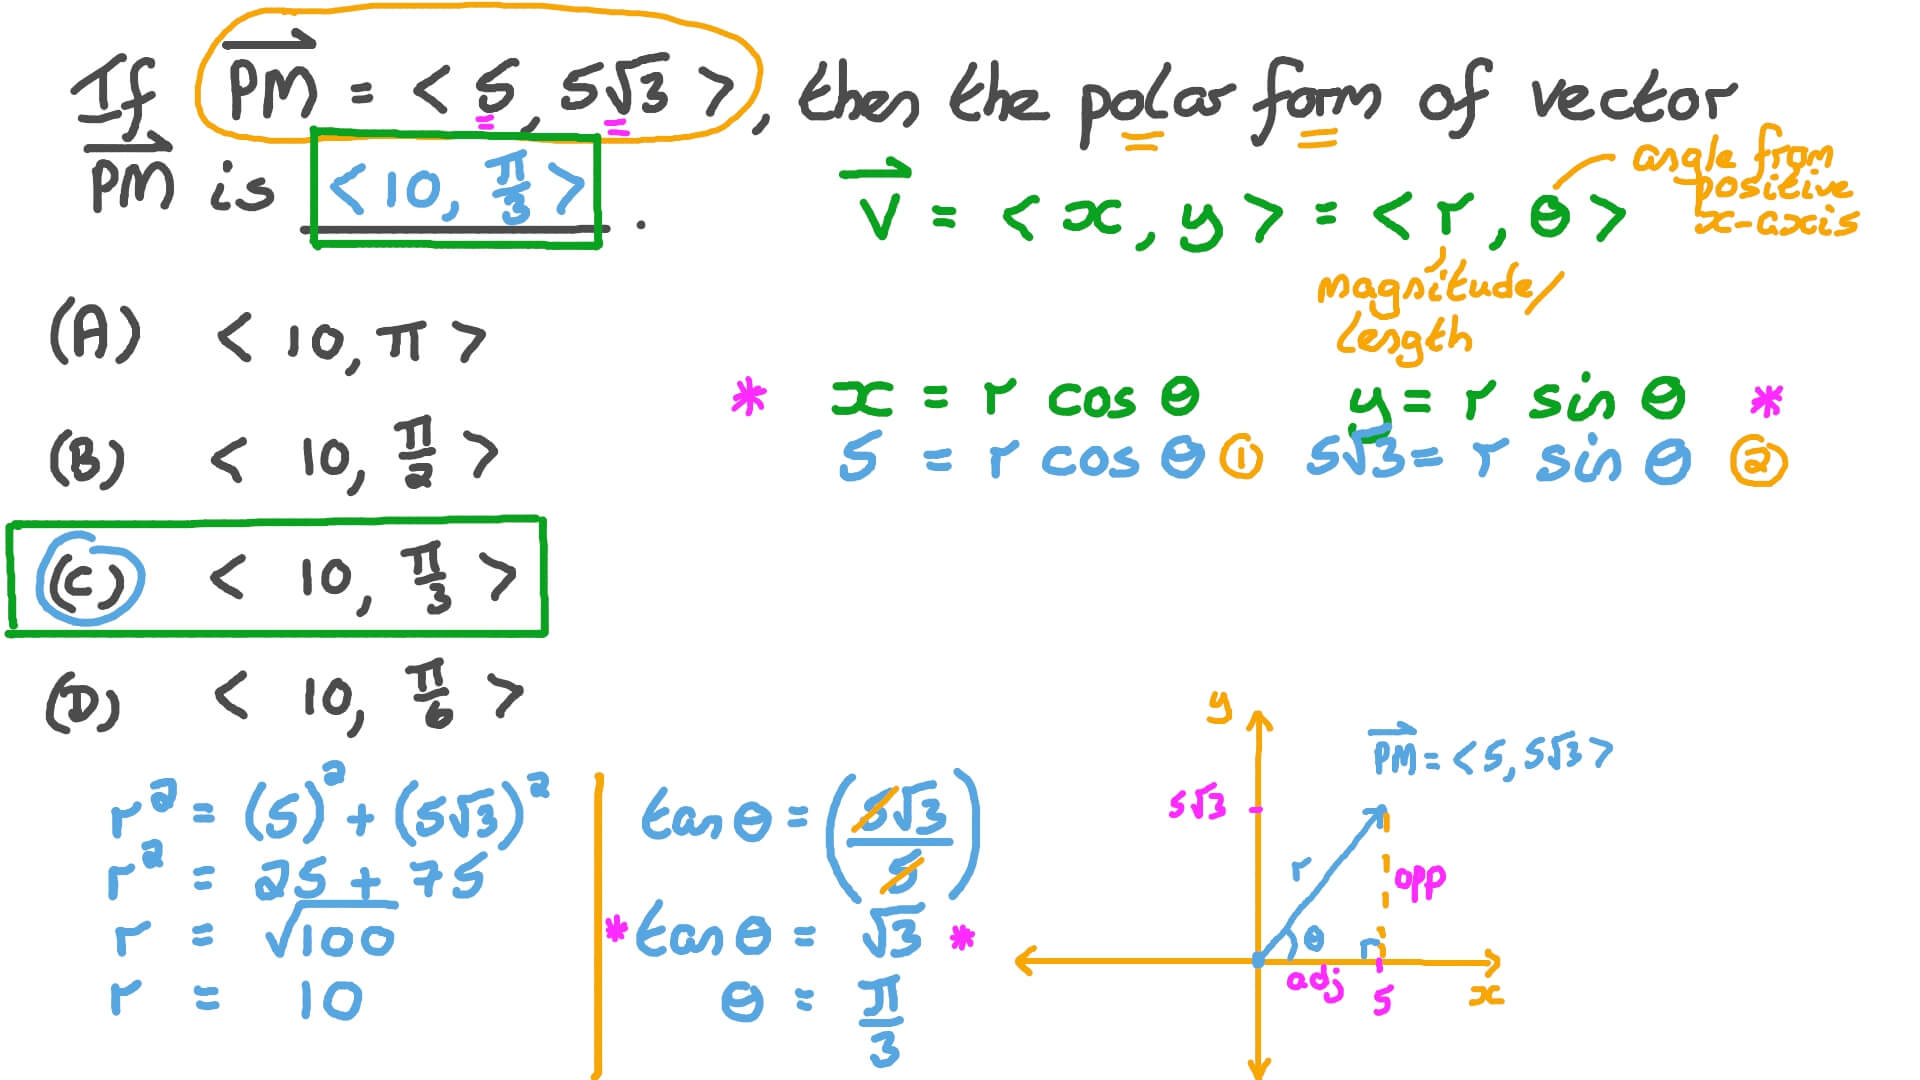 If PM = < 5, 5√3 >, then the polar form of vector
PM is < 10, π/3 > .
V = < x, y > = < r, θ >
angle from
positive
x-axis
magnitude/
length
(A) < 10, π >
* x = r cos θ y = r sin θ *
5 = r cos θ ① 5√3 = r sin θ ②
(B) < 10, π/2 >
(C) < 10, π/3 >
(D) < 10, π/6 >
r² = (5)² + (5√3)²
r² = 25 + 75
r = √100
r = 10
tan θ = (5√3/5)
* tan θ = √3 *
θ = π/3
y
PM = < 5, 5√3 >
5√3
r
opp
θ
adj
5
x